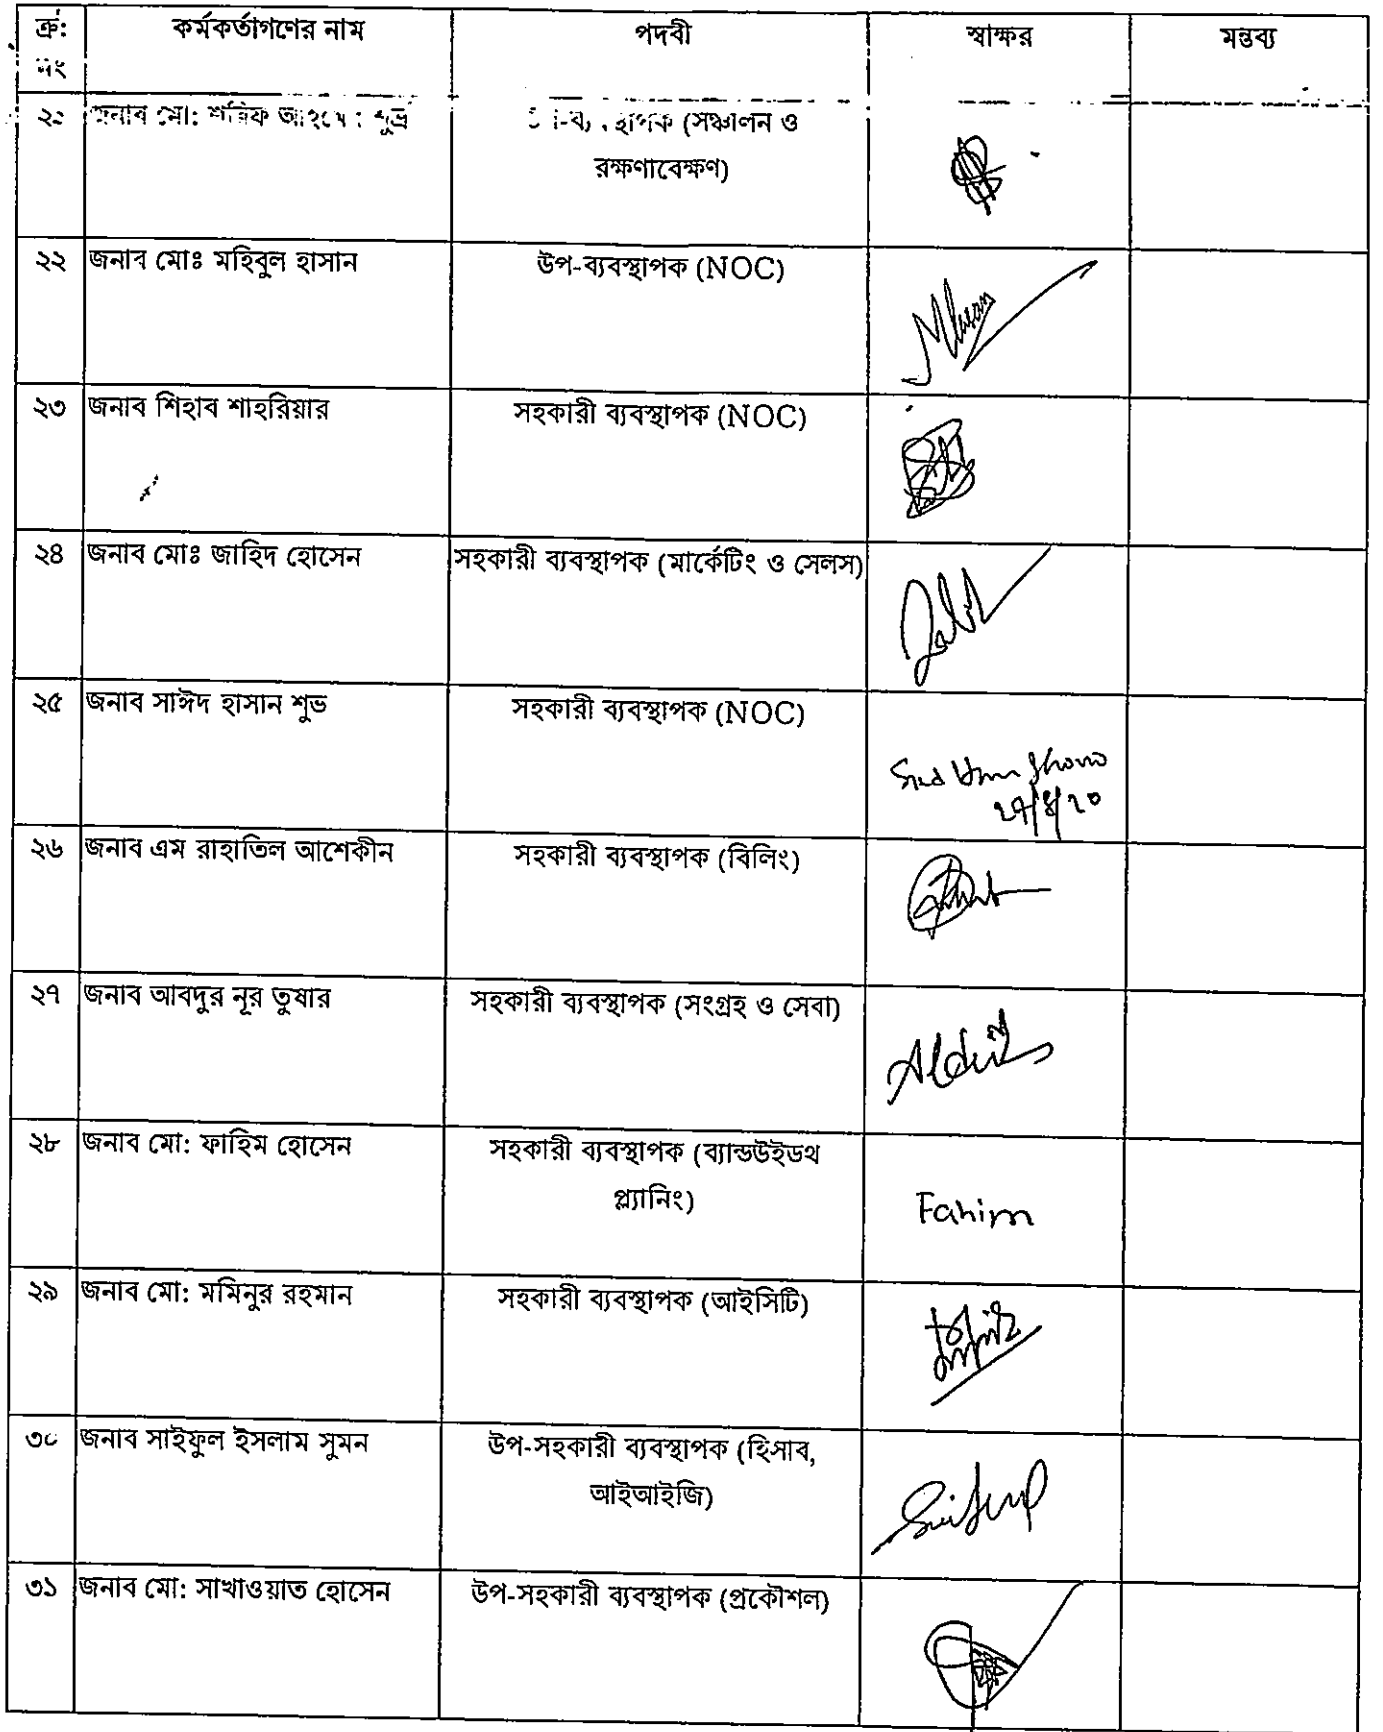 ক্র: কর্মকর্তাগণের নাম পদবী স্বাক্ষর মন্তব্য
নং
২১ জনাব মো: শরিফ আহমেদ শুভ্র উপ-ব্যবস্থাপক (সঞ্চালন ও
রক্ষণাবেক্ষণ)
২২ জনাব মোঃ মহিবুল হাসান উপ-ব্যবস্থাপক (NOC)
২৩ জনাব শিহাব শাহরিয়ার সহকারী ব্যবস্থাপক (NOC)
২৪ জনাব মোঃ জাহিদ হোসেন সহকারী ব্যবস্থাপক (মার্কেটিং ও সেলস)
২৫ জনাব সাঈদ হাসান শুভ সহকারী ব্যবস্থাপক (NOC)
২৬ জনাব এম রাহাতিল আশেকীন সহকারী ব্যবস্থাপক (বিলিং)
২৭ জনাব আবদুর নূর তুষার সহকারী ব্যবস্থাপক (সংগ্রহ ও সেবা)
২৮ জনাব মো: ফাহিম হোসেন সহকারী ব্যবস্থাপক (ব্যান্ডউইডথ
প্ল্যানিং)
Fahim
২৯ জনাব মো: মমিনুর রহমান সহকারী ব্যবস্থাপক (আইসিটি)
৩০ জনাব সাইফুল ইসলাম সুমন উপ-সহকারী ব্যবস্থাপক (হিসাব,
আইআইজি)
৩১ জনাব মো: সাখাওয়াত হোসেন উপ-সহকারী ব্যবস্থাপক (প্রকৌশল)